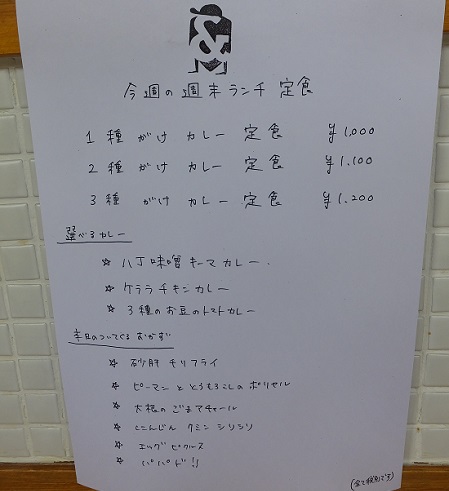 &
今週の週末ランチ定食
1種がけカレー定食 ¥1,000
2種がけカレー定食 ¥1.100
3種がけカレー定食 ¥1.200
選べるカレー
☆ 八丁味噌キーマカレー.
☆ ケララチキンカレー
☆ 3種のお豆のトマトカレー
本日のついてくるおかず
☆ 砂肝チリフライ
☆ ピーマンととうもろこしのポリヤル
☆ 大根のごまアチャール
☆ にんじんクミンシリシリ
☆ エッグピクルス
☆ パパド!!
(全て税別です)